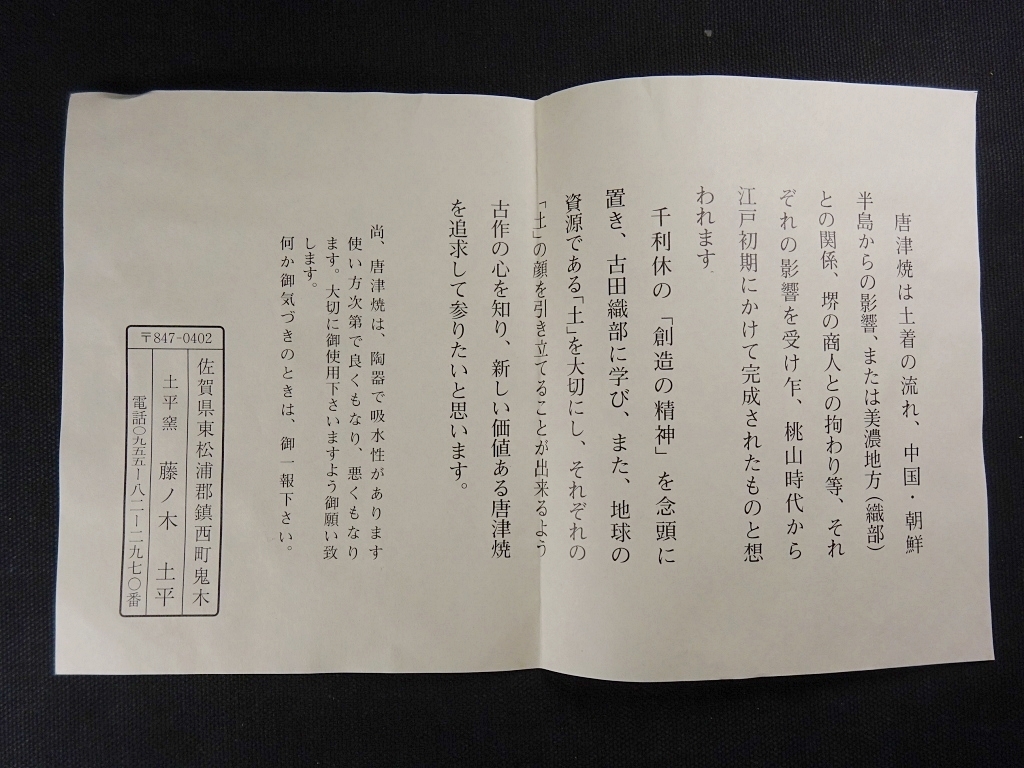 唐津焼は土着の流れ、中国・朝鮮
半島からの影響、または美濃地方(織部)
との関係、堺の商人との拘わり等、それ
ぞれの影響を受け乍、桃山時代から
江戸初期にかけて完成されたものと想
われます.
千利休の「創造の精神」を念頭に
置き、古田織部に学び、また、地球の
資源である「土」を大切にし、それぞれの
「土」の顔を引き立てることが出来るよう
古作の心を知り、新しい価値ある唐津焼
を追求して参りたいと思います。
尚、唐津焼は、陶器で吸水性があります
使い方次第で良くもなり、悪くもなり
ます。大切に御使用下さいますよう御願い致
します。
何か御気づきのときは、御一報下さい。
〒847-0402
佐賀県東松浦郡鎮西町鬼木
土平窯 藤ノ木 土平
電話〇九五五ー八二ー二九七〇番